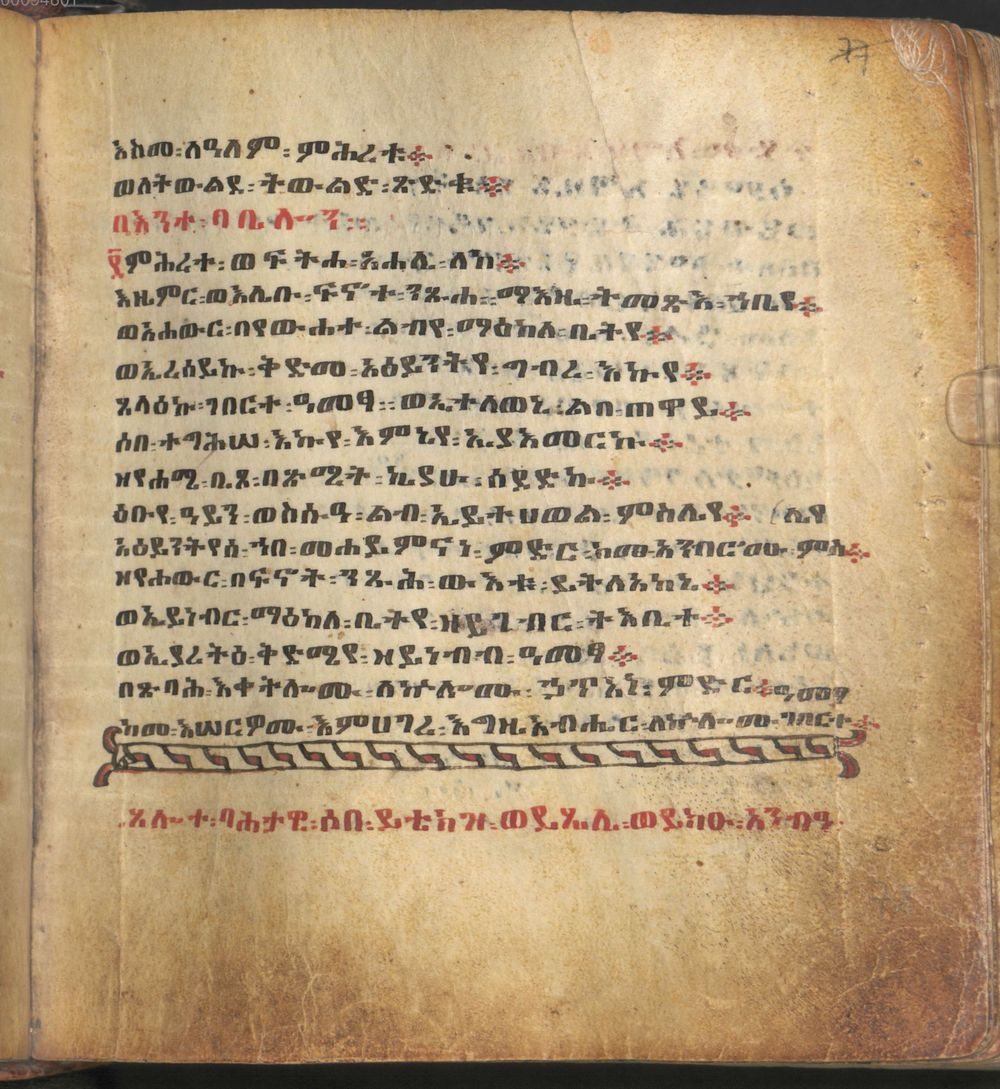 እስመ፡ለዓለም፡ምሕረቱ፨
ወለትውልደ፡ትውልድ፡ጽድቁ፨
በእንተ፡ባቢሎን፡፡
፻ምሕረተ፡ወፍትሐ፡አሐሊ፡ለከ፨
እዜምር፡ወእሌቡ፡ፍኖተ፡ንጹሐ፡ማእዜ፡ትመጽእ፡ኀቤየ፨
ወአሐውር፡በየውሐተ፡ልብየ፡ማዕከለ፡ቤትየ፨
ወኢረሰይኩ፡ቅድመ፡አዕይንትየ፡ግብረ፡እኩየ፨
ጸላዕኩ፡ገበርተ፡ዓመፃ፡ወኢተለወኒ፡ልበ፡ጠዋይ፨
ሶበ፡ተግሕሠ፡እኩየ፡እምኔየ፡ኢያእመርኩ፨
ዘየሐሚ፡ቢጾ፡በጽሚት፡ኪያሁ፡ሰደድኩ፨
ዕቡየ፡ዓይን፡ወስሱዓ፡ልብ፡ኢይትሀወል፡ምስሌየ፨
አዕይንትየሰ፡ኀበ፡መሐይምናነ፡ምድር፡ከመ፡አንብርሙ፡ምስ፨ ሌየ
ዘየሐውር፡በፍኖት፡ንጹሕ፡ውእቱ፡ይትለአከኒ፨
ወኢይነብር፡ማዕከለ፡ቤትየ፡ዘይገብር፡ትዕቢተ፨
ወኢያረትዕ፡ቅድሜየ፡ዘይነብብ፡ዓመፃ፨
በጽባሕ፡እቀትሎሙ፡ለኵሎሙ፡ኃጥአነ፡ምድር፨
ከመ፡እሠርዎሙ፡እምሀገረ፡እግዚአብሔር፡ለኵሎሙ፡ገበርተ፨ ዓመፃ
ጸሎተ፡ባሕታዊ፡ሶበ፡ይቴክዝ፡ወይጼሊ፡ወይክዑ፡አንብዓ